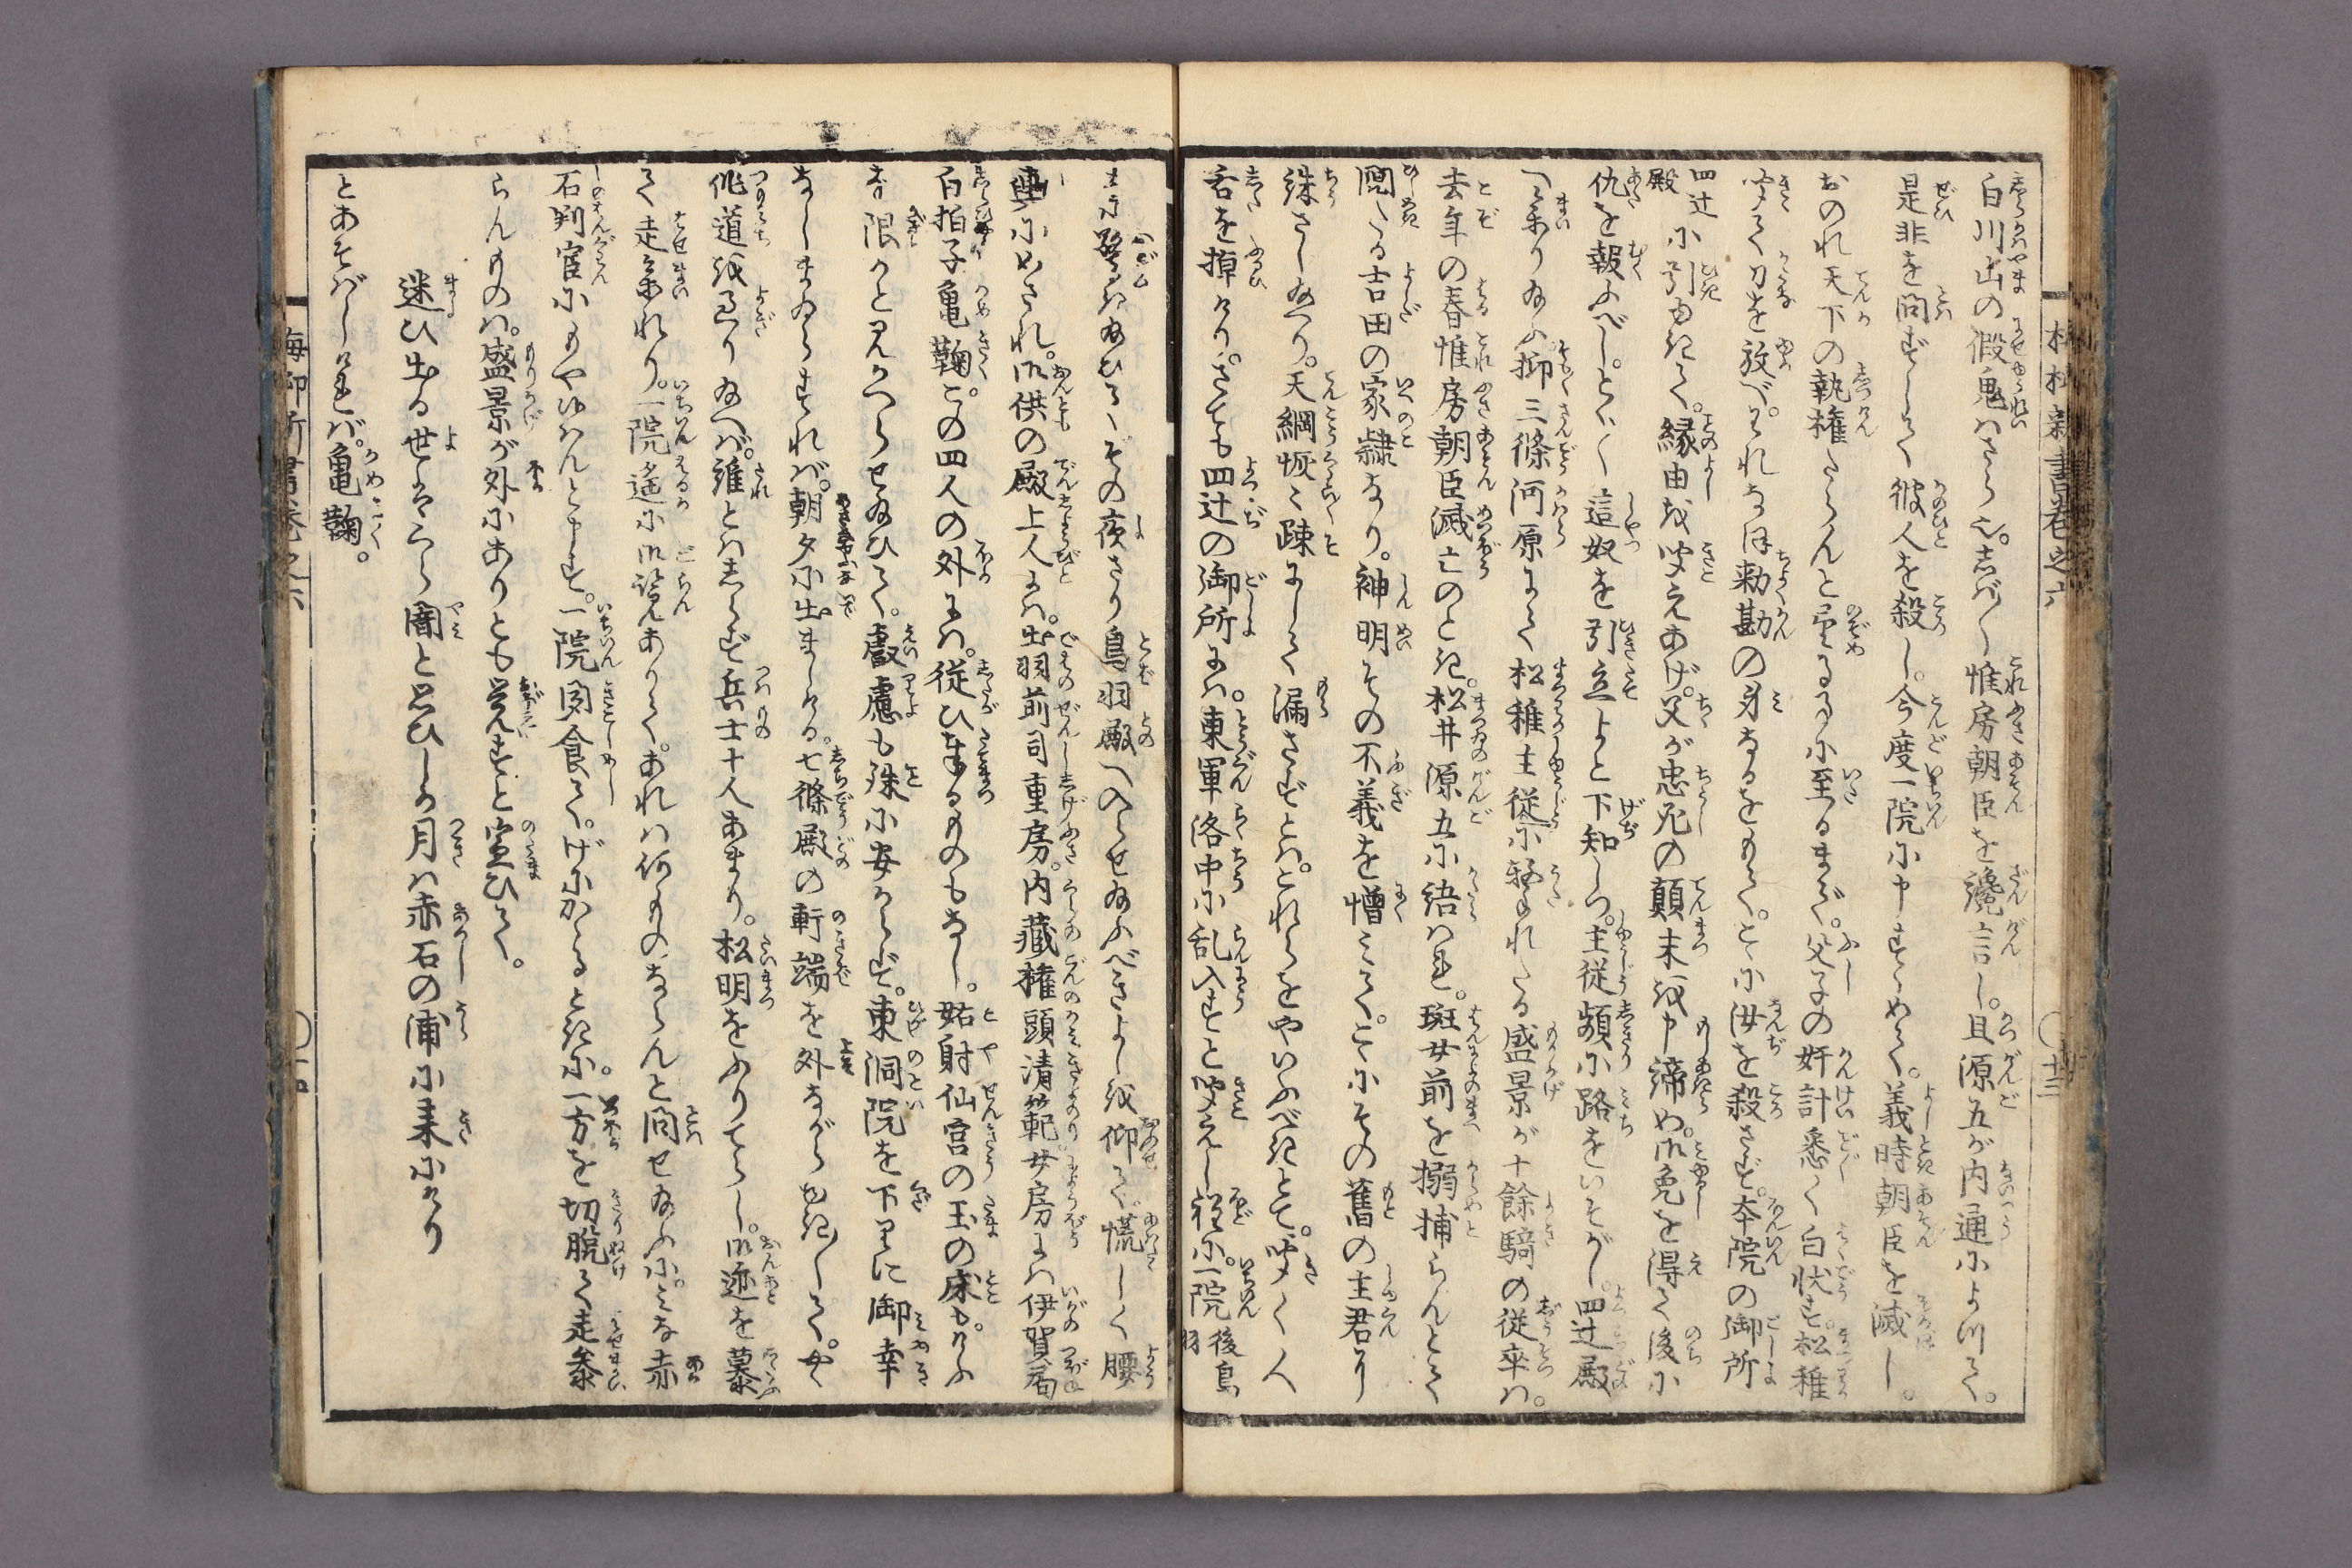 白川山の假鬼はさら也。しばしば惟房朝臣を讒言し。且源五が内通によりて。
是非を問ずして彼人を殺し。今度一院に申すゝめて。義時朝臣を滅し。
おのれ天下の執権たらんと望るに至るまで。父子の奸計悉く白状す。松稚
聞て刀を放べ。われなほ勅勘の身なるをもて。こゝに汝を殺さず。本院の御所
四辻殿に引もて。縁由を聞えあげ。父が忠死の顛末を申諦め。御免を得て後に
仇を報ふべし。とく〳〵這奴を引立よと下知しつ。主従頻に路をいそがし。四辻殿
へ参り給ふ。抑三條河原にて松稚主従に撃れたる盛景が十餘騎の従卒は。
去年の春惟房朝臣滅亡のとき。松井源五に語はれ。斑女前を搦捕らんとて
鬩たる吉田の家隷なり。神明その不義を憎みて。こゝにその舊の主君より
誅さし給へり。天網恢々疎にして漏さずとは。これらをやいふべきとて。聞く人
舌を掉けり。さても四辻の御所には。東軍洛中に乱入すと聞えし程に。一院後鳥羽
驚き給ひて。その夜さり鳥羽殿へ入らせ給ふべきよしを仰て。慌しく腰
輿にめされ。御供の殿上人には。出羽前司重房。内蔵権頭清範。女房には伊賀局
白拍子亀鞠。この四人の外には。従ひ奉るものもなし。姑射仙宮の玉の床も。けふ
を限りと見かへらせ給ひて。叡慮も殊に安からず。東洞院を下りに御幸
なしまゐらすれば。朝夕に出ましける。七條殿の軒端を外ながら過して。
作道を過り給へば。誰とはしらず兵士十人あまり。松明をふりてらし。御迹を慕
て走参れり。一院遙に御覧ありて。あれは何ものならんと問せ給ふに。みな赤
石判官にもや候はんと申す。一院聞食て。げにかゝるときに。一方を切脱て走参
らんものは。盛景が外にありとも覚ずと宣ひて。
迷ひ出る世はみなら闇と思ひしに月は赤石の浦に来にけり
とあそばしければ。亀鞠。